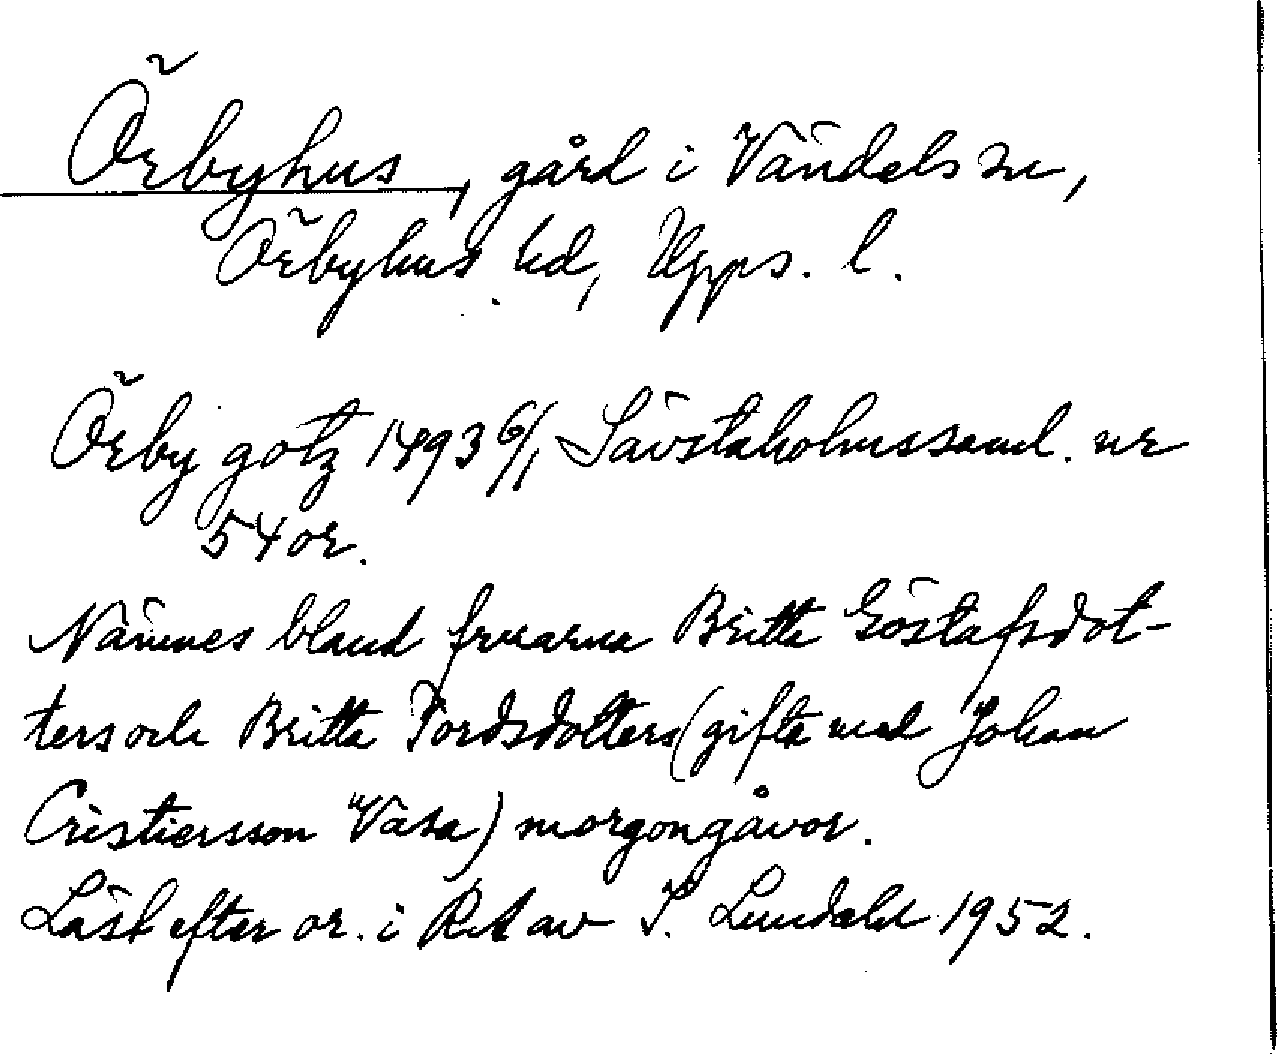 Örbyhus, gård i Vändels sn,
Örbyhus hd, Upps. l.
Örby gotz 1493 6/1 Sävstaholmssaml. nr
54 or.
Nämnes bland fruarna Britta Göstafsdot-
ters och Britta Tordsdotters (gifta med Johan
Cristiersson Vasa) morgongåvor.
Läst efter or. i RA av I. Lundahl 1952.